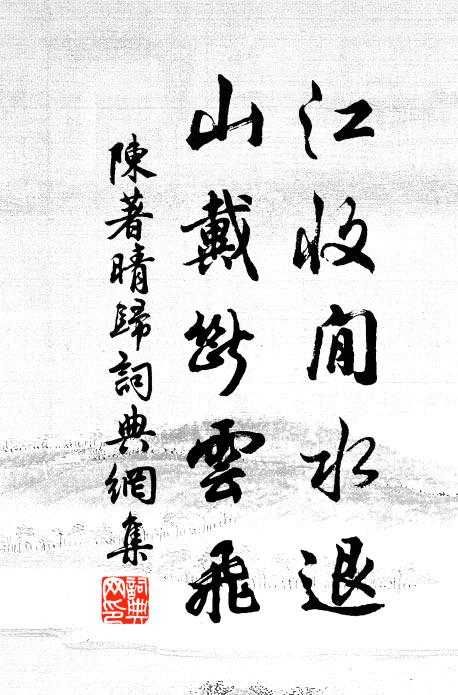 江收閒水退
山戴斷雲飛
陳著晴歸詞典網集
詞典網印